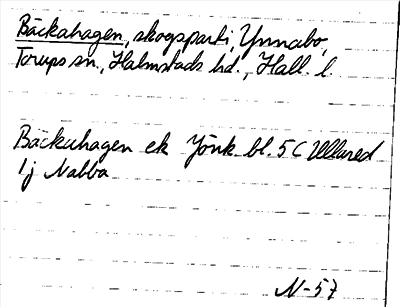 Bäckahagen, skogsparti, Ynnabo,
Torups sn., Halmstads hd., Hall. l.
Bäckahagen ek Jönk. bl. 5 C Ullared
1j Nabba
N-57